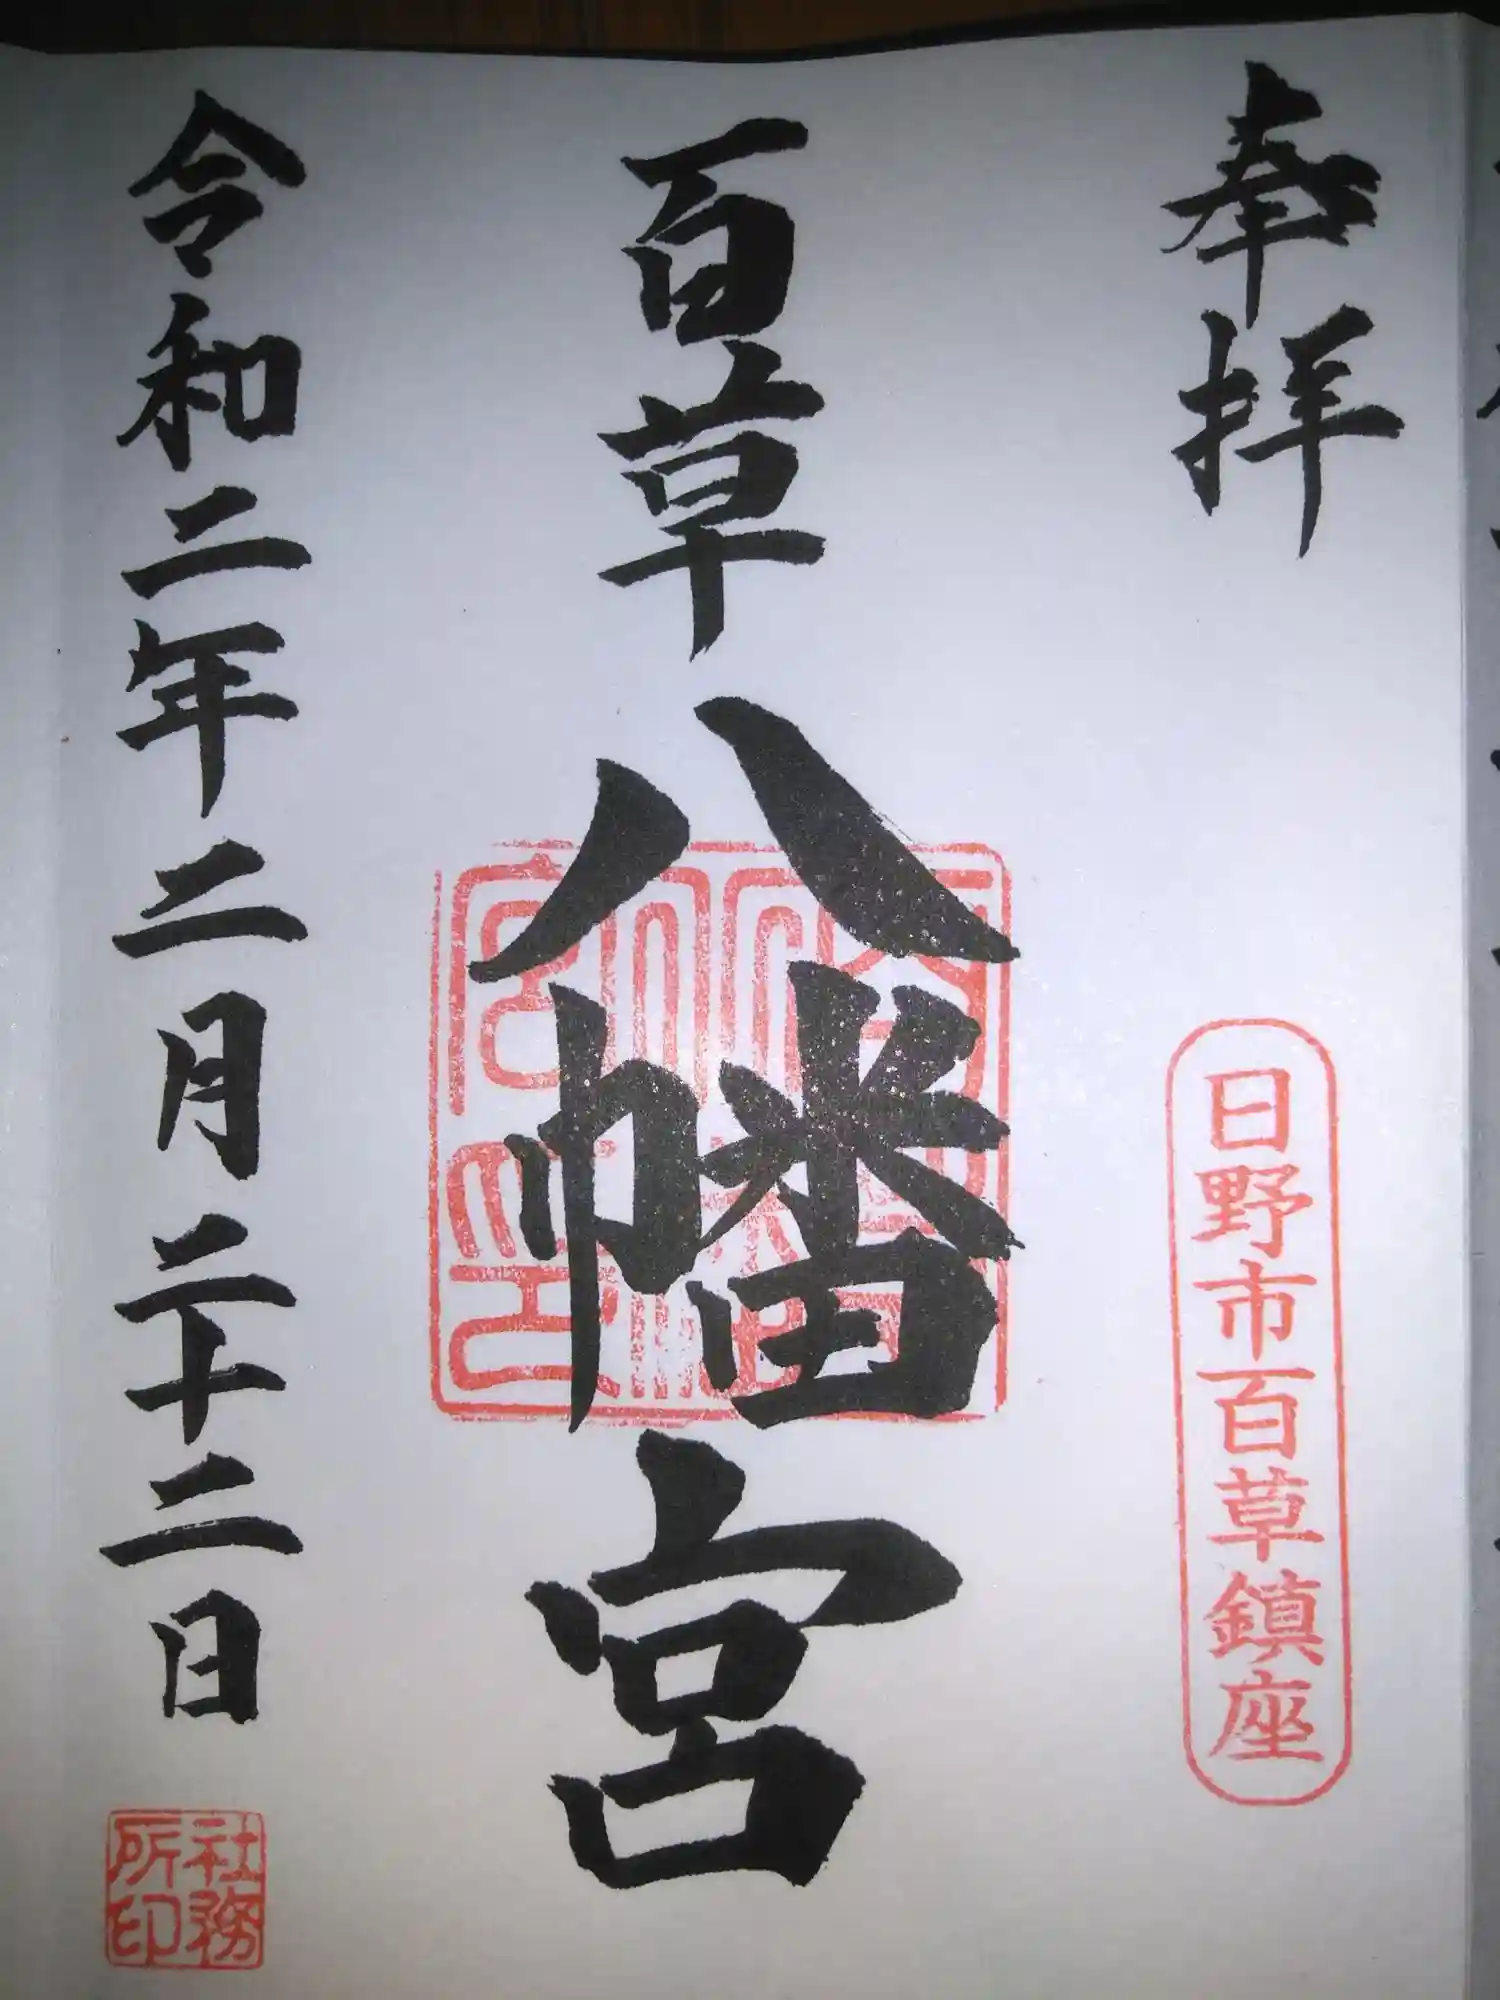 奉拝
日野市百草鎮座
百草八幡宮
令和二年二月二十二日
社務
所印